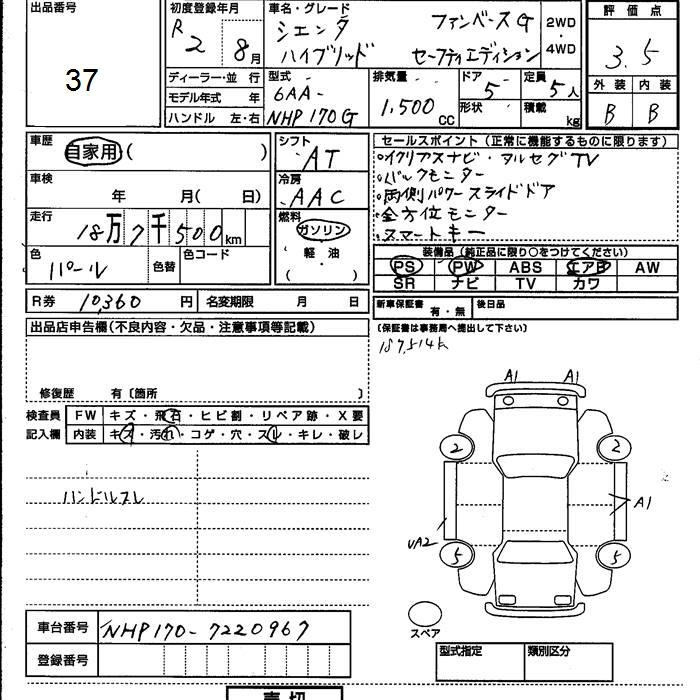 出品番号
37
初度登録年月
R2 8月
車名・グレード
シエンタ ファンベースG
ハイブリッド セーフティエディション
2WD
・
4WD
評価点
3.5
外装 内装
B B
ディーラー・並 行
モデル年式 年
ハンドル 左・右
型式
6AA-
NHP170G
排気量
1,500 CC
ドア
5
形状
定員
5人
積載
kg
車歴
自家用( )
車検
年 月( 日)
走行
18万7千500km
色
パール
色替
色コード
シフト
AT
冷房
AAC
燃料
ガソリン
軽・油
( )
セールスポイント(正常に機能するものに限ります)
・イクリプスナビ・フルセグTV
・バックモニター
・両側パワースライドドア
・全方位モニター
・スマートキー
装備品(純正品に限り○をつけてください)
PS PW ABS エアB AW
SR ナビ TV カワ
R券 10,360円
名変期限 月 日
新車保証書 有・無
後日品
(保証書は事務局へ提出して下さい)
187,514k
出品店申告欄(不良内容・欠品・注意事項等記載)
修復歴 有〔箇所 〕
検査員
記入欄
FW キズ・飛石・ヒビ割・リペア跡・X要
内装 キズ・汚れ・コゲ・穴・スレ・キレ・破レ
ハンドルスレ
A1 A1
2 2
A1
UA2
5 5
スペア
車台番号 NHP170-7220967
登録番号
型式指定 類別区分
売切